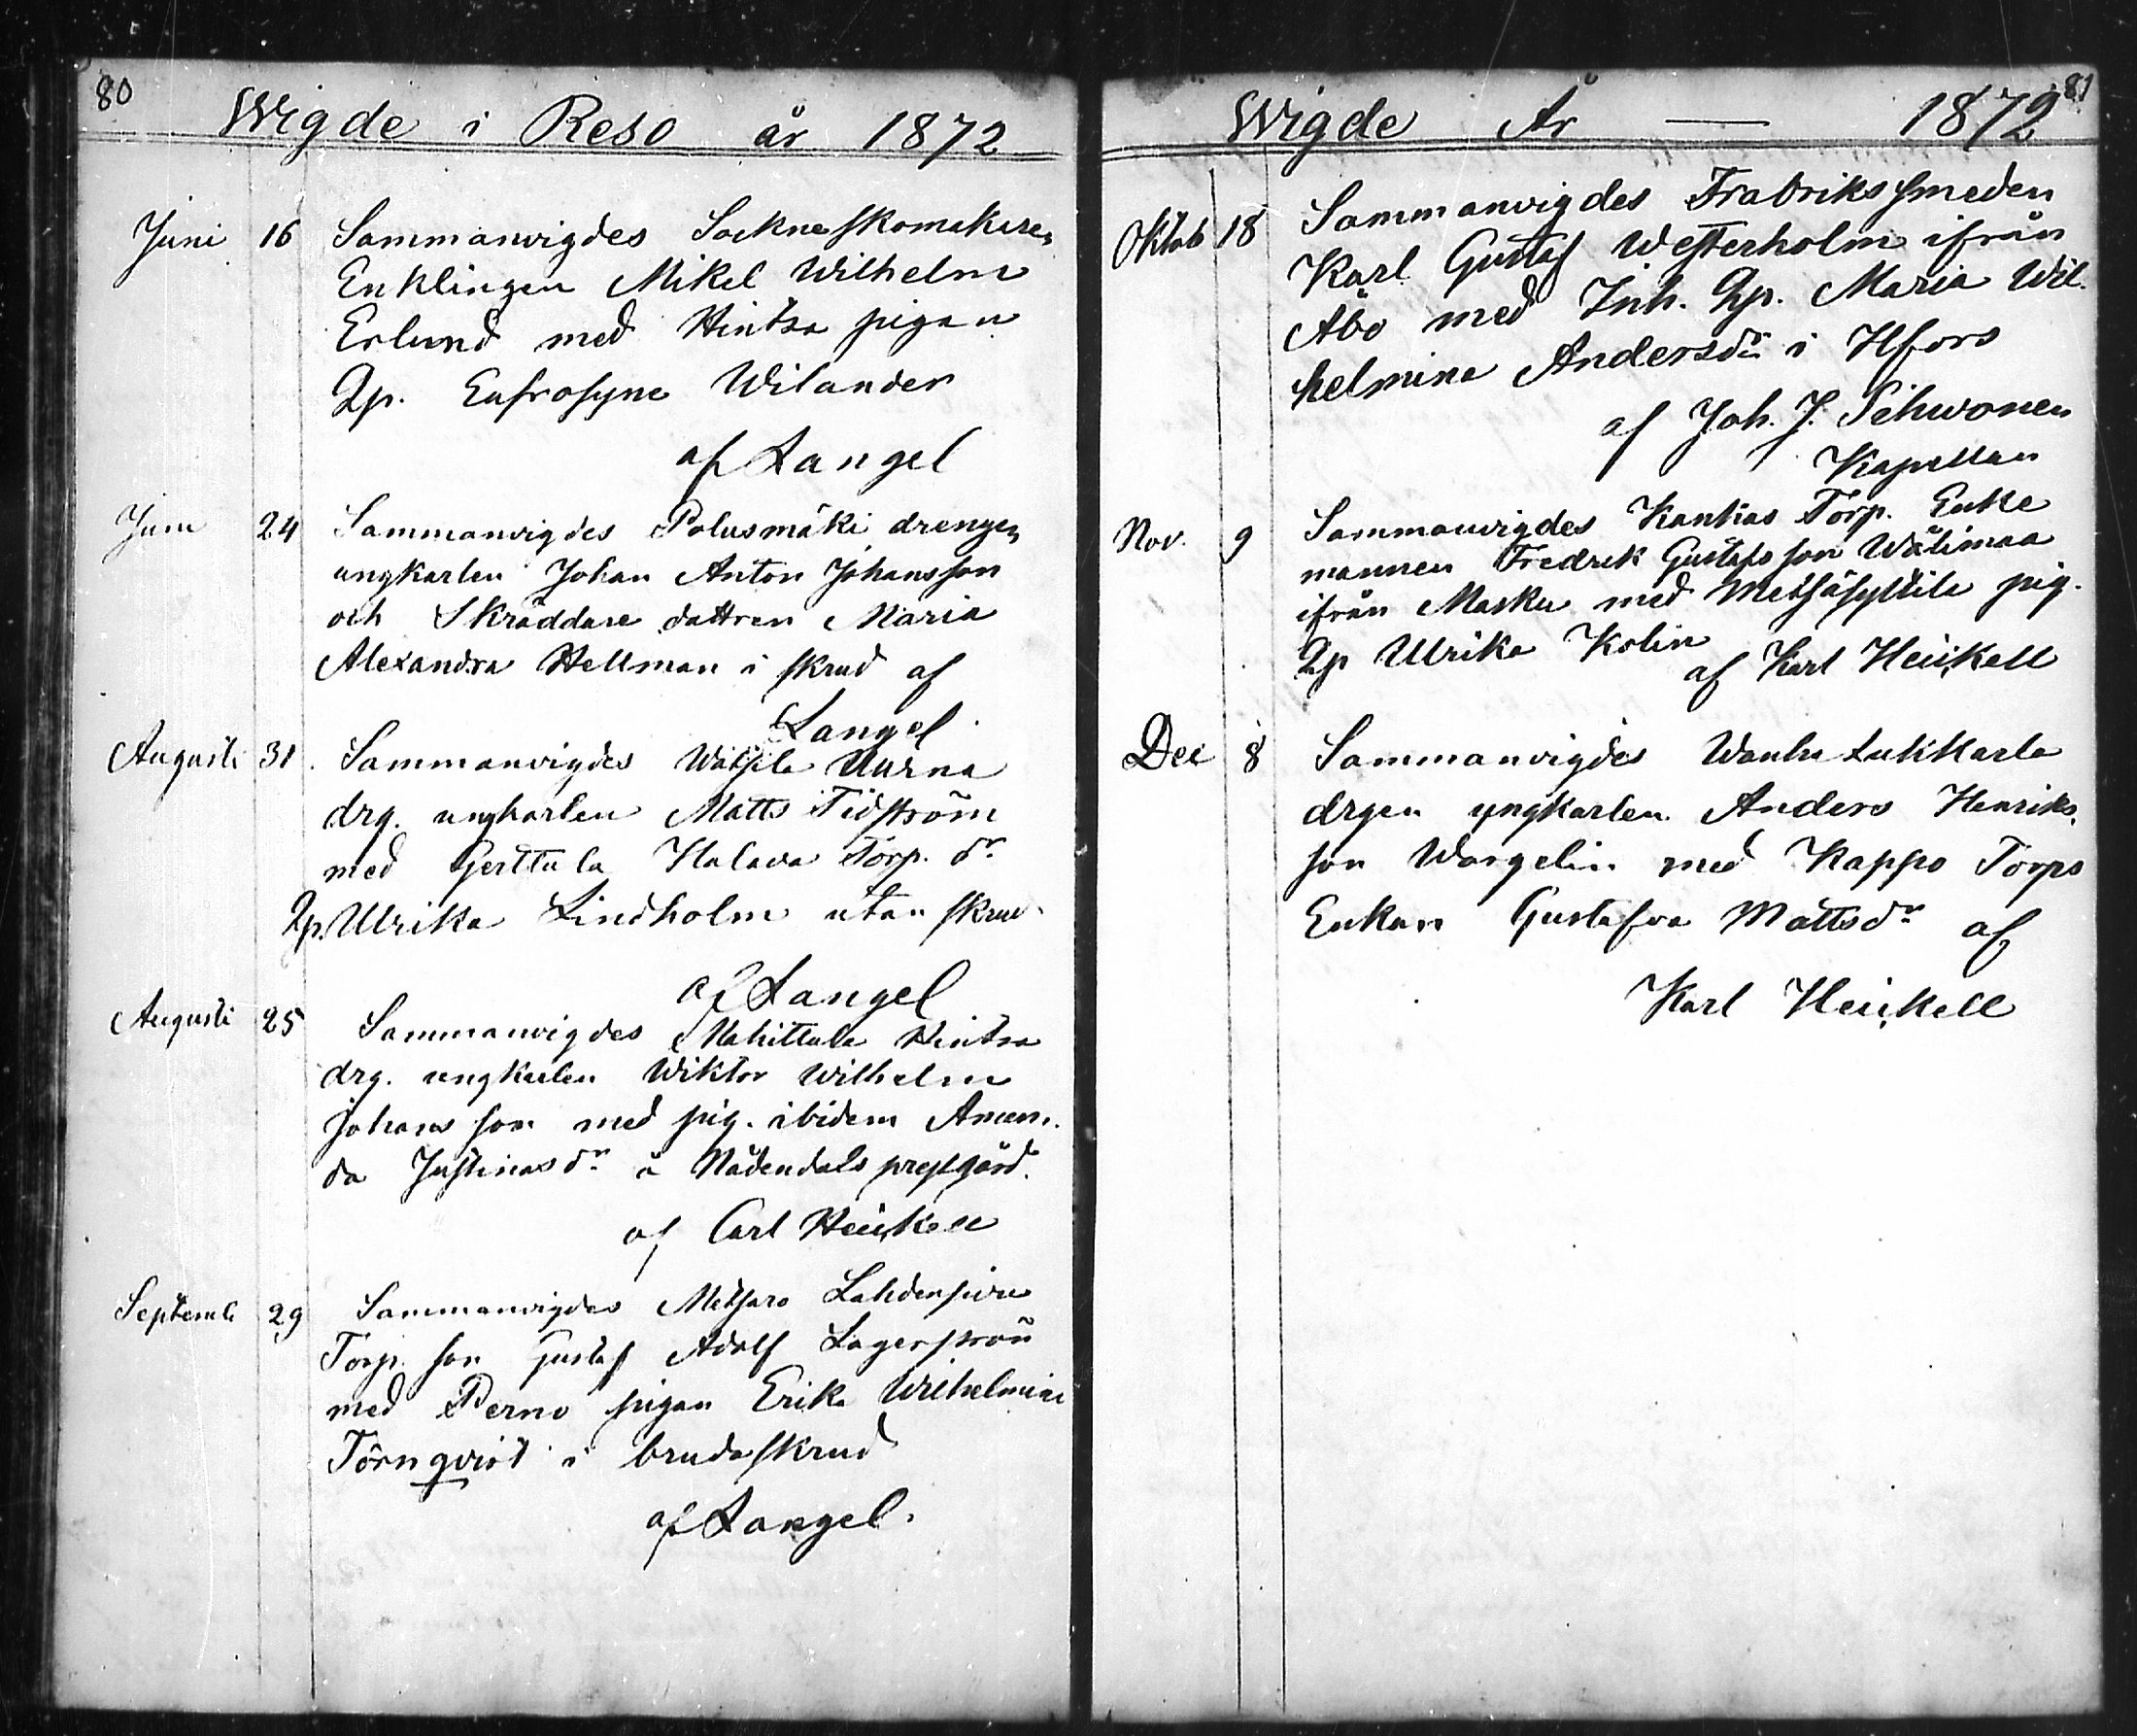 80
Wigde i Reso år 1872
Juni 16 Sammanwigdes Sockneskomakaren
Enklingen Mikel Wilhelm
Erlund med Hintsa pigan
Qp. Eufrosyne Wilander
af Langel
Juni 24 Sammanwigdes Polusmäki drengen
ungkarlen Johan Anton Johansson
och Skräddare dottren Maria
Alexandra Hellman i skrud af
Langel
Augusti 31. Sammanwigdes Wätsilä Uurna
drg. ungkarlen Matts Tidström
med Gerttula Halava Torp. dr
Qp. Ulrika Lindholm utan skrud
af Langel
Augusti 25 Sammanwigdes Mahittula Hintsa
drg. ungkarlen Wiktor Wilhelm
Johansson med pig. ibidem Aman-
da Justinasdr å Nådendals prestgård.
af Carl Heickell
Septemb 29 Sammanwigdes Metsaro Lahdenpiru
Torp. son Gustaf Adolf Lagerström
med Perno pigan Erika Wilhelmina
Törnqvist i brudeskrud
af Langel.
81
Wigde År — 1872
Oktob 18 Sammanwigdes Frabrikssmeden
Karl Gustaf Westerholm ifrån
Åbo med Inh. Qp. Maria Wil-
helmina Andersdr i Hfors
af Joh. J. Pihwonen
Kapellan
Nov. 9 Sammanwigdes Kankas Torp. Enke
mannen Fredrik Gustafsson Wälimaa
ifrån Masku med Metsäkyltilä pig.
Qp Ulrika Kolin
af Karl Heickell
Dec 8 Sammanwigdes Wanha Lukkarla
drgen yngkarlen Anders Henriks-
son Wargelin med Kappo Torps
Enkan Gustafva Mattsdr af
Karl Heickell